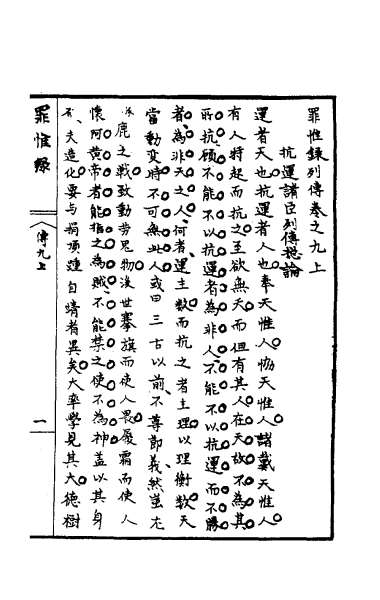 罪惟錄列傳卷之九上
抗運諸臣列傳總論
運者天也抗運者人也奉天惟人協天惟人諸戴天惟人
有人特起而抗之至欲無天而但有其人在天故不為其
所抗顧不能不以抗運者為非人不能不以抗運而不勝
者為非天之人何者運主數而抗之者主理以理衡數天
當動變時不可無此人或曰三古以前不尊節義然蚩尤
涿鹿之戰致動勞鬼物後世搴旗而使人畏履霜而使人
懷阿黃帝者能指之為賊不能禁之使不為神蓋以其身
夫造化要與揭頂踵自靖者異矣大率學見其大德樹
罪惟錄
傳九上
一